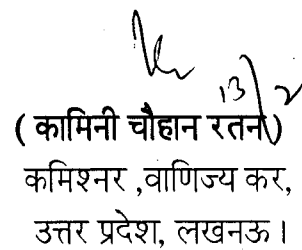 13/2
( कामिनी चौहान रतन )
कमिश्नर ,वाणिज्य कर,
उत्तर प्रदेश, लखनऊ ।